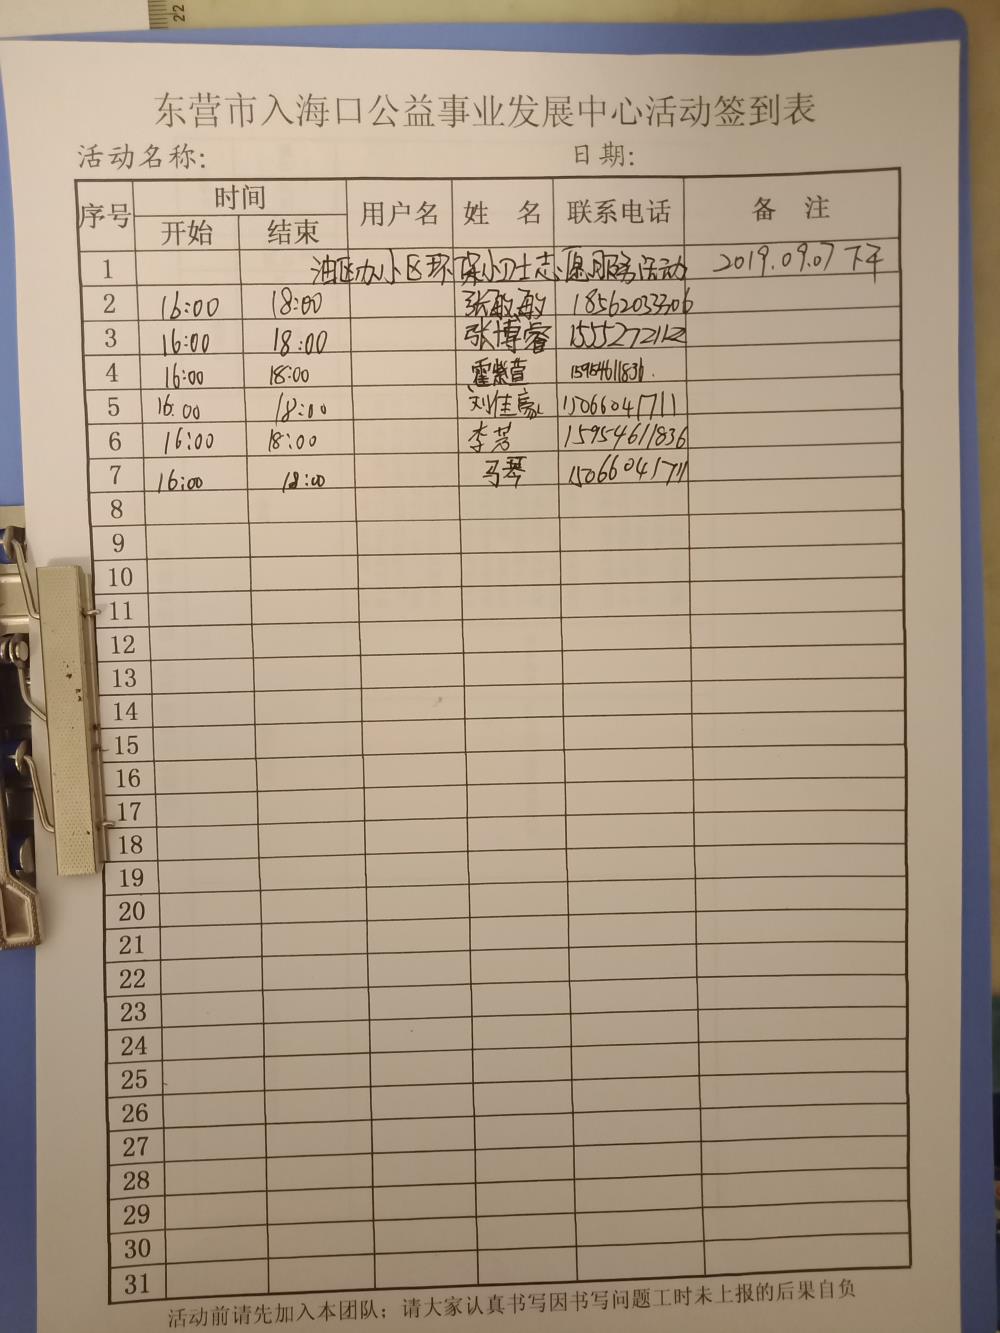 22
东营市入海口公益事业发展中心活动签到表
活动名称: 日期:
序号 时间 用户名 姓 名 联系电话 备 注
开始 结束
1 油区办小区环保小卫士志愿服务活动 2019.09.07 下午
2 16:00 18:00 张敏敏 18562033706
3 16:00 18:00 张博睿
4 16:00 18:00 霍紫萱 15954611836.
5 16:00 18:00 刘佳豪 15066041711
6 16:00 18:00 李芳 15954611836
7 16:00 18:00 马琴 15066041711
8
9
10
11
12
13
14
15
16
17
18
19
20
21
22
23
24
25
26
27
28
29
30
31
活动前请先加入本团队；请大家认真书写因书写问题工时未上报的后果自负